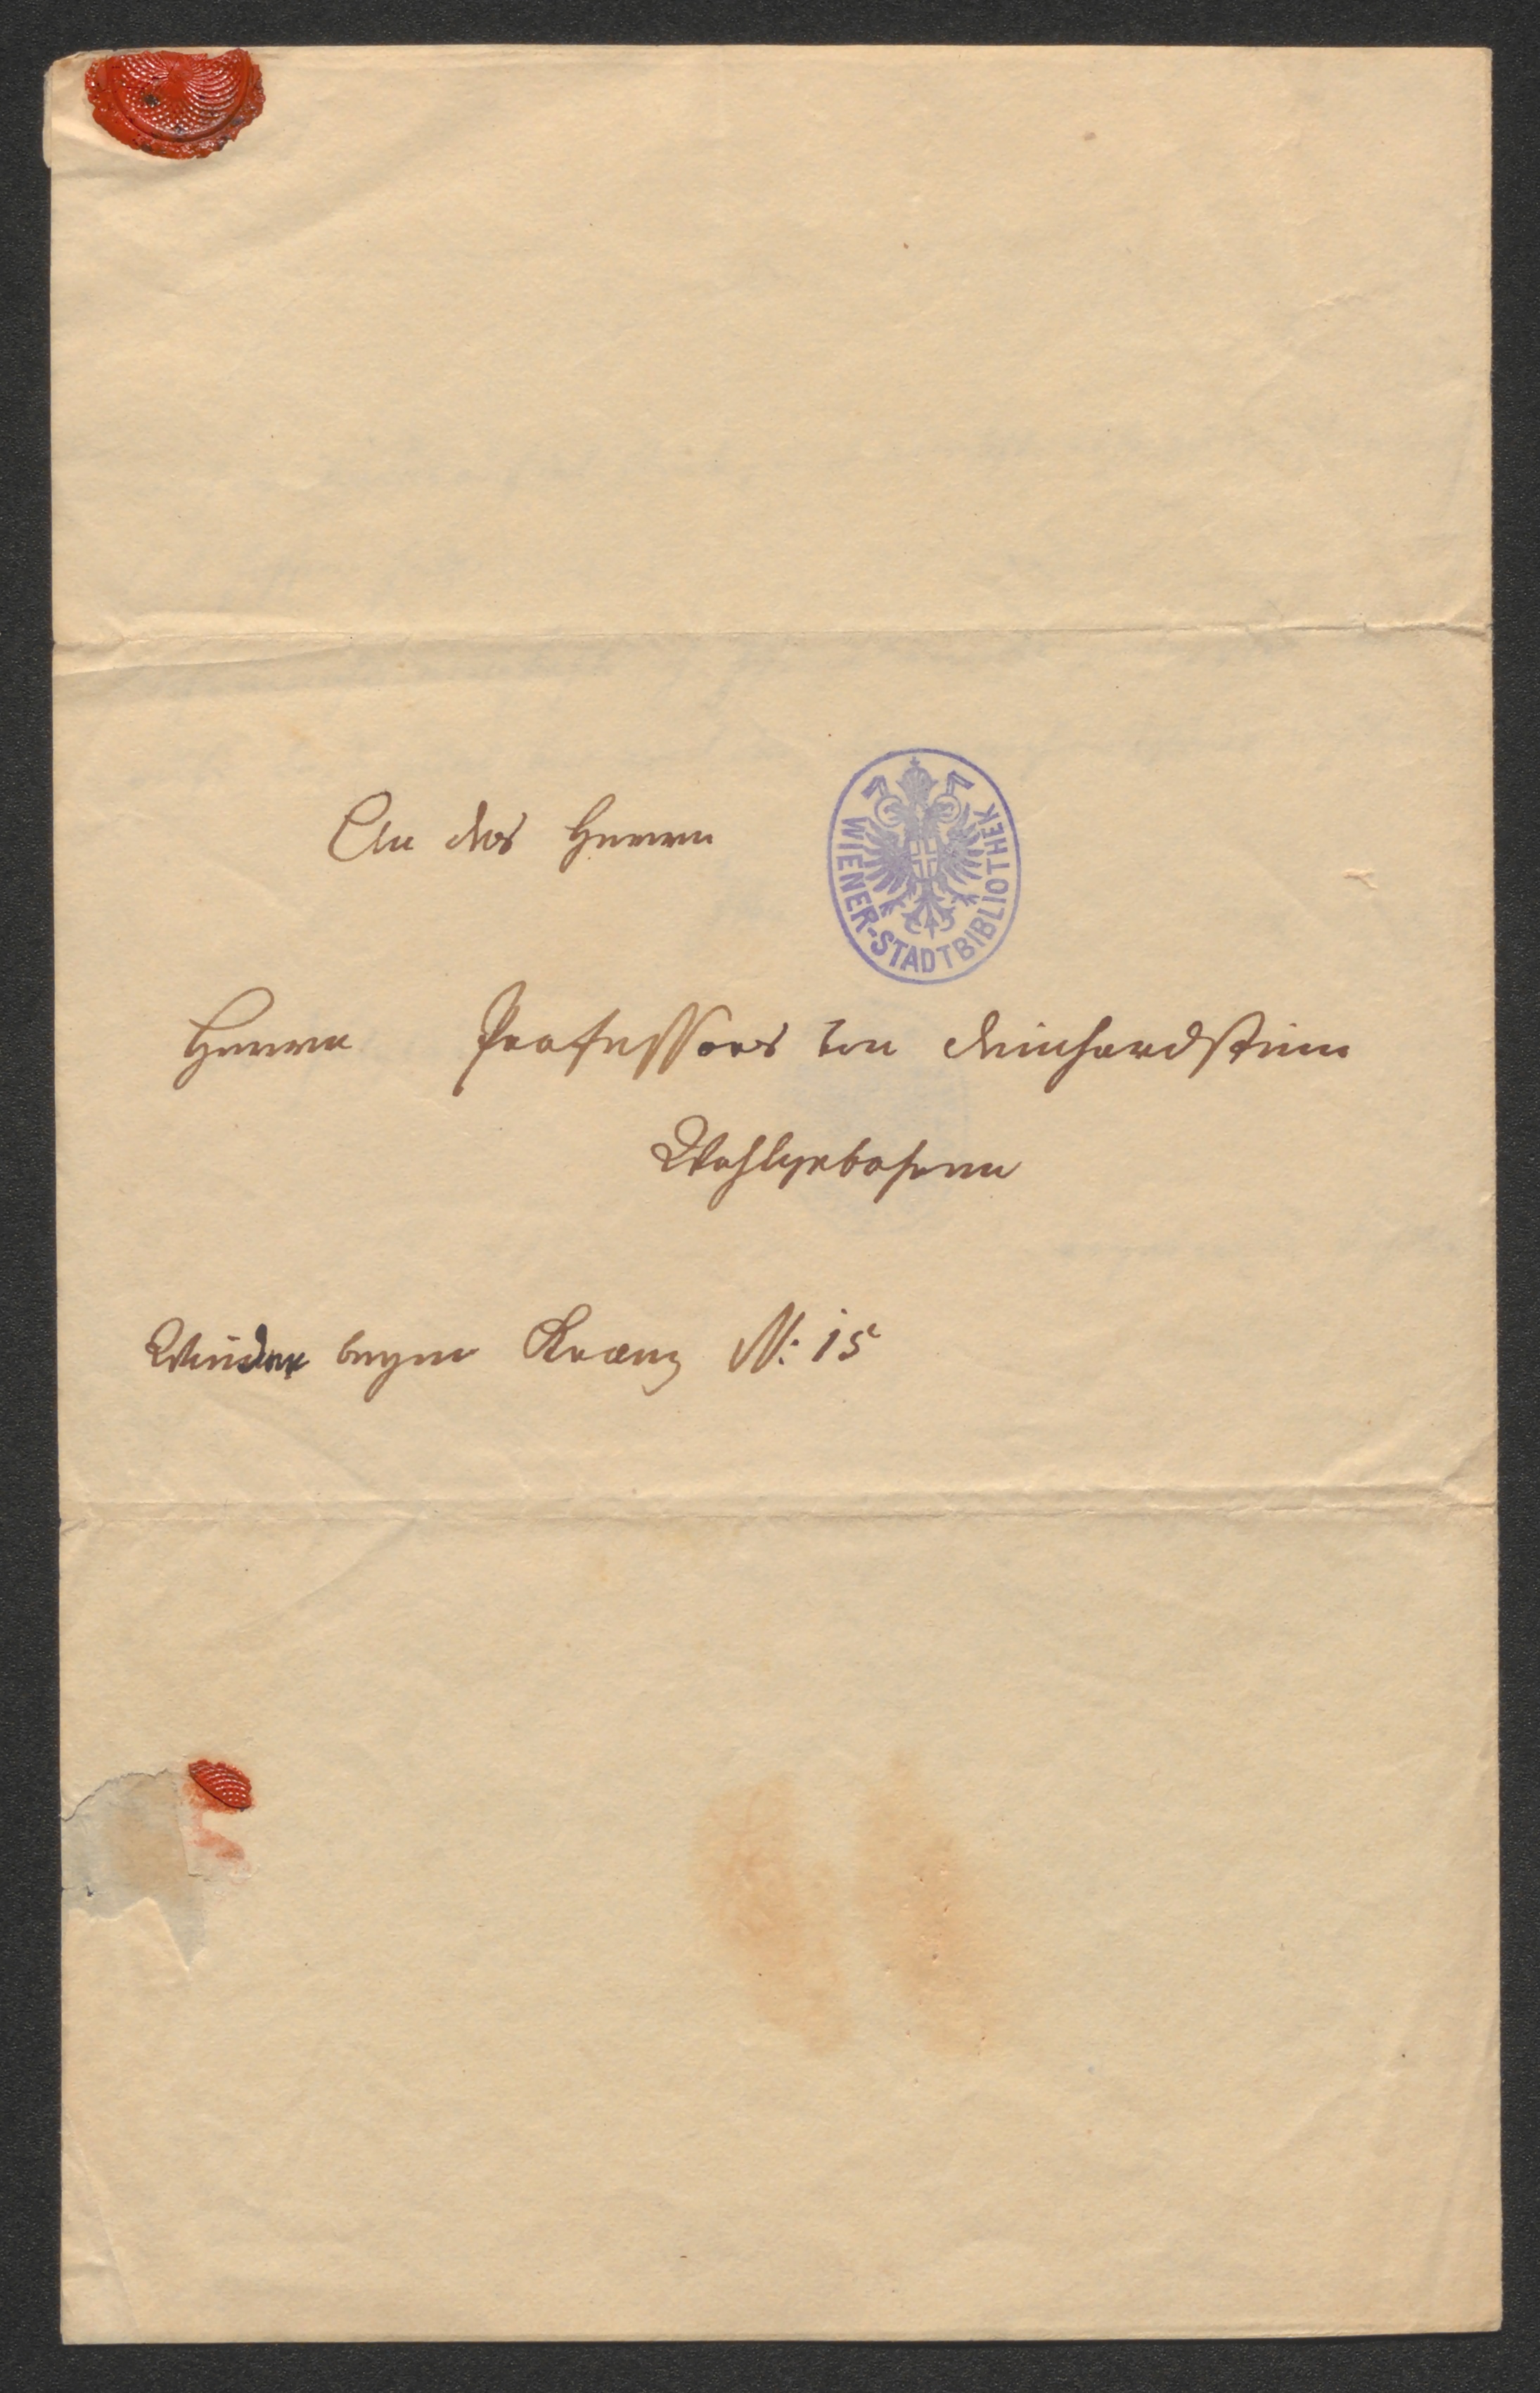 An des Herrn
WIENER-STADTBIBLIOTHEK
Herrn Professors von Deinhardstein
Wohlgebohren
Wieden beym Kranz N: 15